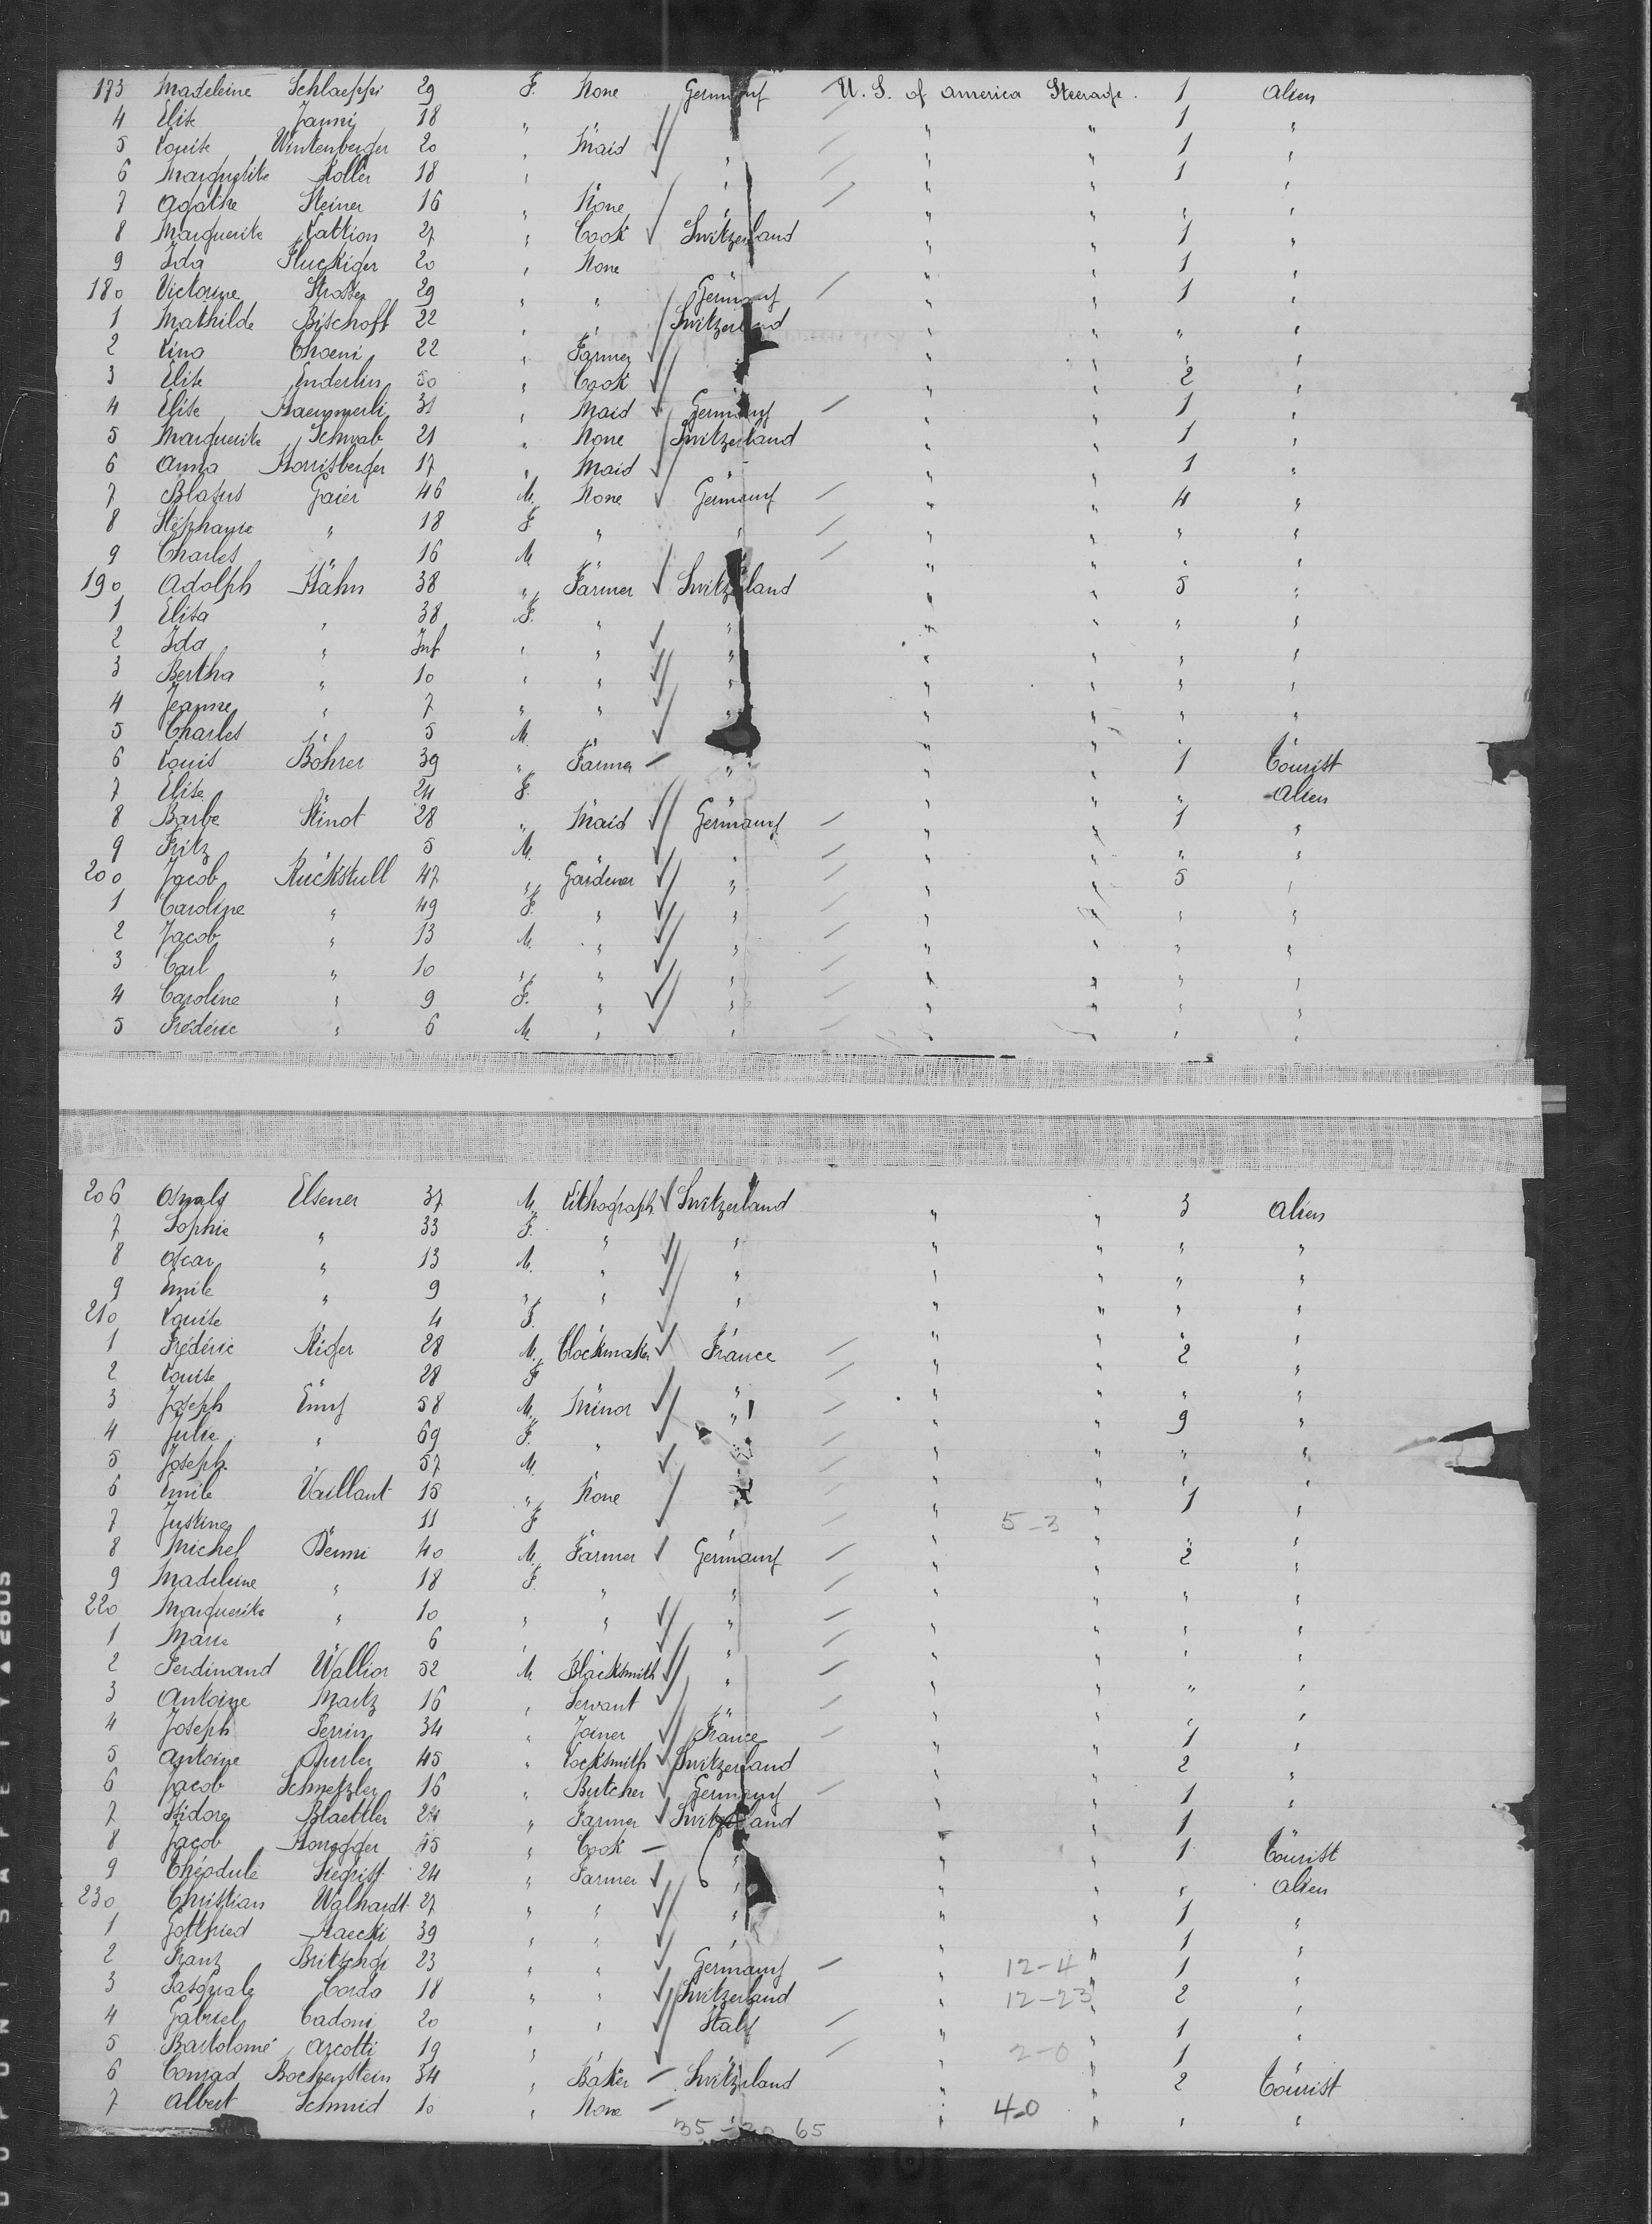 173 Madeleine Schlaeppi 29 F. None Germany U. S. of America Steerage. 1 Alien
4 Elise Janni 18 " " " " 1 "
5 Louise Wintenberger 20 " Maid " " " 1 "
6 Marguerite Koller 18 " " " " " 1 "
7 Agathe Steiner 16 " None " " " " "
8 Marguerite Vattion 27 " Cook Switzerland " " 1 "
9 Ida Fluckiger 20 " None " " 1 "
180 Victorine Strosser 29 " " Germany " " 1 "
1 Mathilde Bischoff 22 " Switzerland " " " "
2 Lina Choeni 22 " Farmer " " " "
3 Elise Enderlin 50 " Cook " " 2 "
4 Elise Haemmerli 31 " Maid Germany " " 1 "
5 Marguerite Schwab 21 " None Switzerland " " 1 "
6 Anna Horrisberger 17 " Maid " " " 1 "
7 Blasius Gaier 46 M. None Germany " " 4 "
8 Stéphanie " 18 F. " " " " " "
9 Charles " 16 M. " " " " "
190 Adolph Kähn 38 " Farmer Switzerland " " 5 "
1 Elisa " 38 F. " " " " " "
2 Ida " Inf " " " " " " "
3 Bertha " 10 " " " " " " "
4 Jeanne " 7 " " " " " " "
5 Charles " 5 M. " " " " "
6 Louis Böhrer 39 " Farmer " " " 1 Tourist
7 Elise " 24 F. " " " " Alien
8 Barbe Stinot 28 " Maid Germany " " 1 "
9 Fritz " 5 M. " " " " "
200 Jacob Ruckstull 47 " Gardener " " " 5 "
1 Caroline " 49 F. " " " " " "
2 Jacob " 13 M. " " " " " "
3 Carl " 10 " " " " " " "
4 Caroline " 9 F. " " " " " "
5 Frédéric " 6 M. " " " " " "
206 Oswald Elsener 37 M. Lithograph Switzerland " " 3 Alien
7 Sophie " 33 F. " " " " " "
8 Oscar " 13 M. " " " " " "
9 Emile " 9 " " " " " " "
210 Louise " 4 F. " " " " "
1 Frédéric Kiger 28 M. Clockmaker France " " 2 "
2 Louise " 28 F. " " " " "
3 Joseph Emy 58 M. Minor " " " 9 "
4 Julie " 69 F. " " " " " "
5 Joseph " 57 M. " " " " "
6 Emile Vaillant 15 " None " " " 1 "
7 Justine " 11 F " 5-3 " "
8 Michel Denni 40 M. Farmer Germany " " 2 "
9 Madeleine " 18 F. " " " " " "
220 Marguerite " 10 " " " " " " "
1 Marie " 6 " " " " " "
2 Ferdinand Wallior 52 M. Blacksmith " " " " "
3 Antoine Martz 16 " Servant " " " " "
4 Joseph Perrin 34 " Joiner France " " 1 "
5 Antoine Durler 45 " Locksmith Switzerland " " 2 "
6 Jacob Schmetzler 16 " Butcher Germany " " 1 "
7 Isidore Blaettler 24 " Farmer Switzerland " " 1 "
8 Jacob Honegger 45 " Cook " " " 1 Tourist
9 Théodule Siegrist 24 " Farmer " " " " Alien
230 Christian Walhardt 27 " " " " " 1 "
1 Gottfried Haecki 39 " " " " " 1 "
2 Franz Britschgi 23 " " Germany " 12-4 " 1 "
3 Pasquale Cordo 18 " " Switzerland " 12-23 " 2 "
4 Gabriel Cadoni 20 " " Italy " " 1 "
5 Bartolomé Arcotti 19 " " " " 2-0 " 1 "
6 Conrad Bochenstein 34 " Baker Switzerland " " 2 Tourist
7 Albert Schmid 10 " None " " 4-0 " " "
35 - 30 65